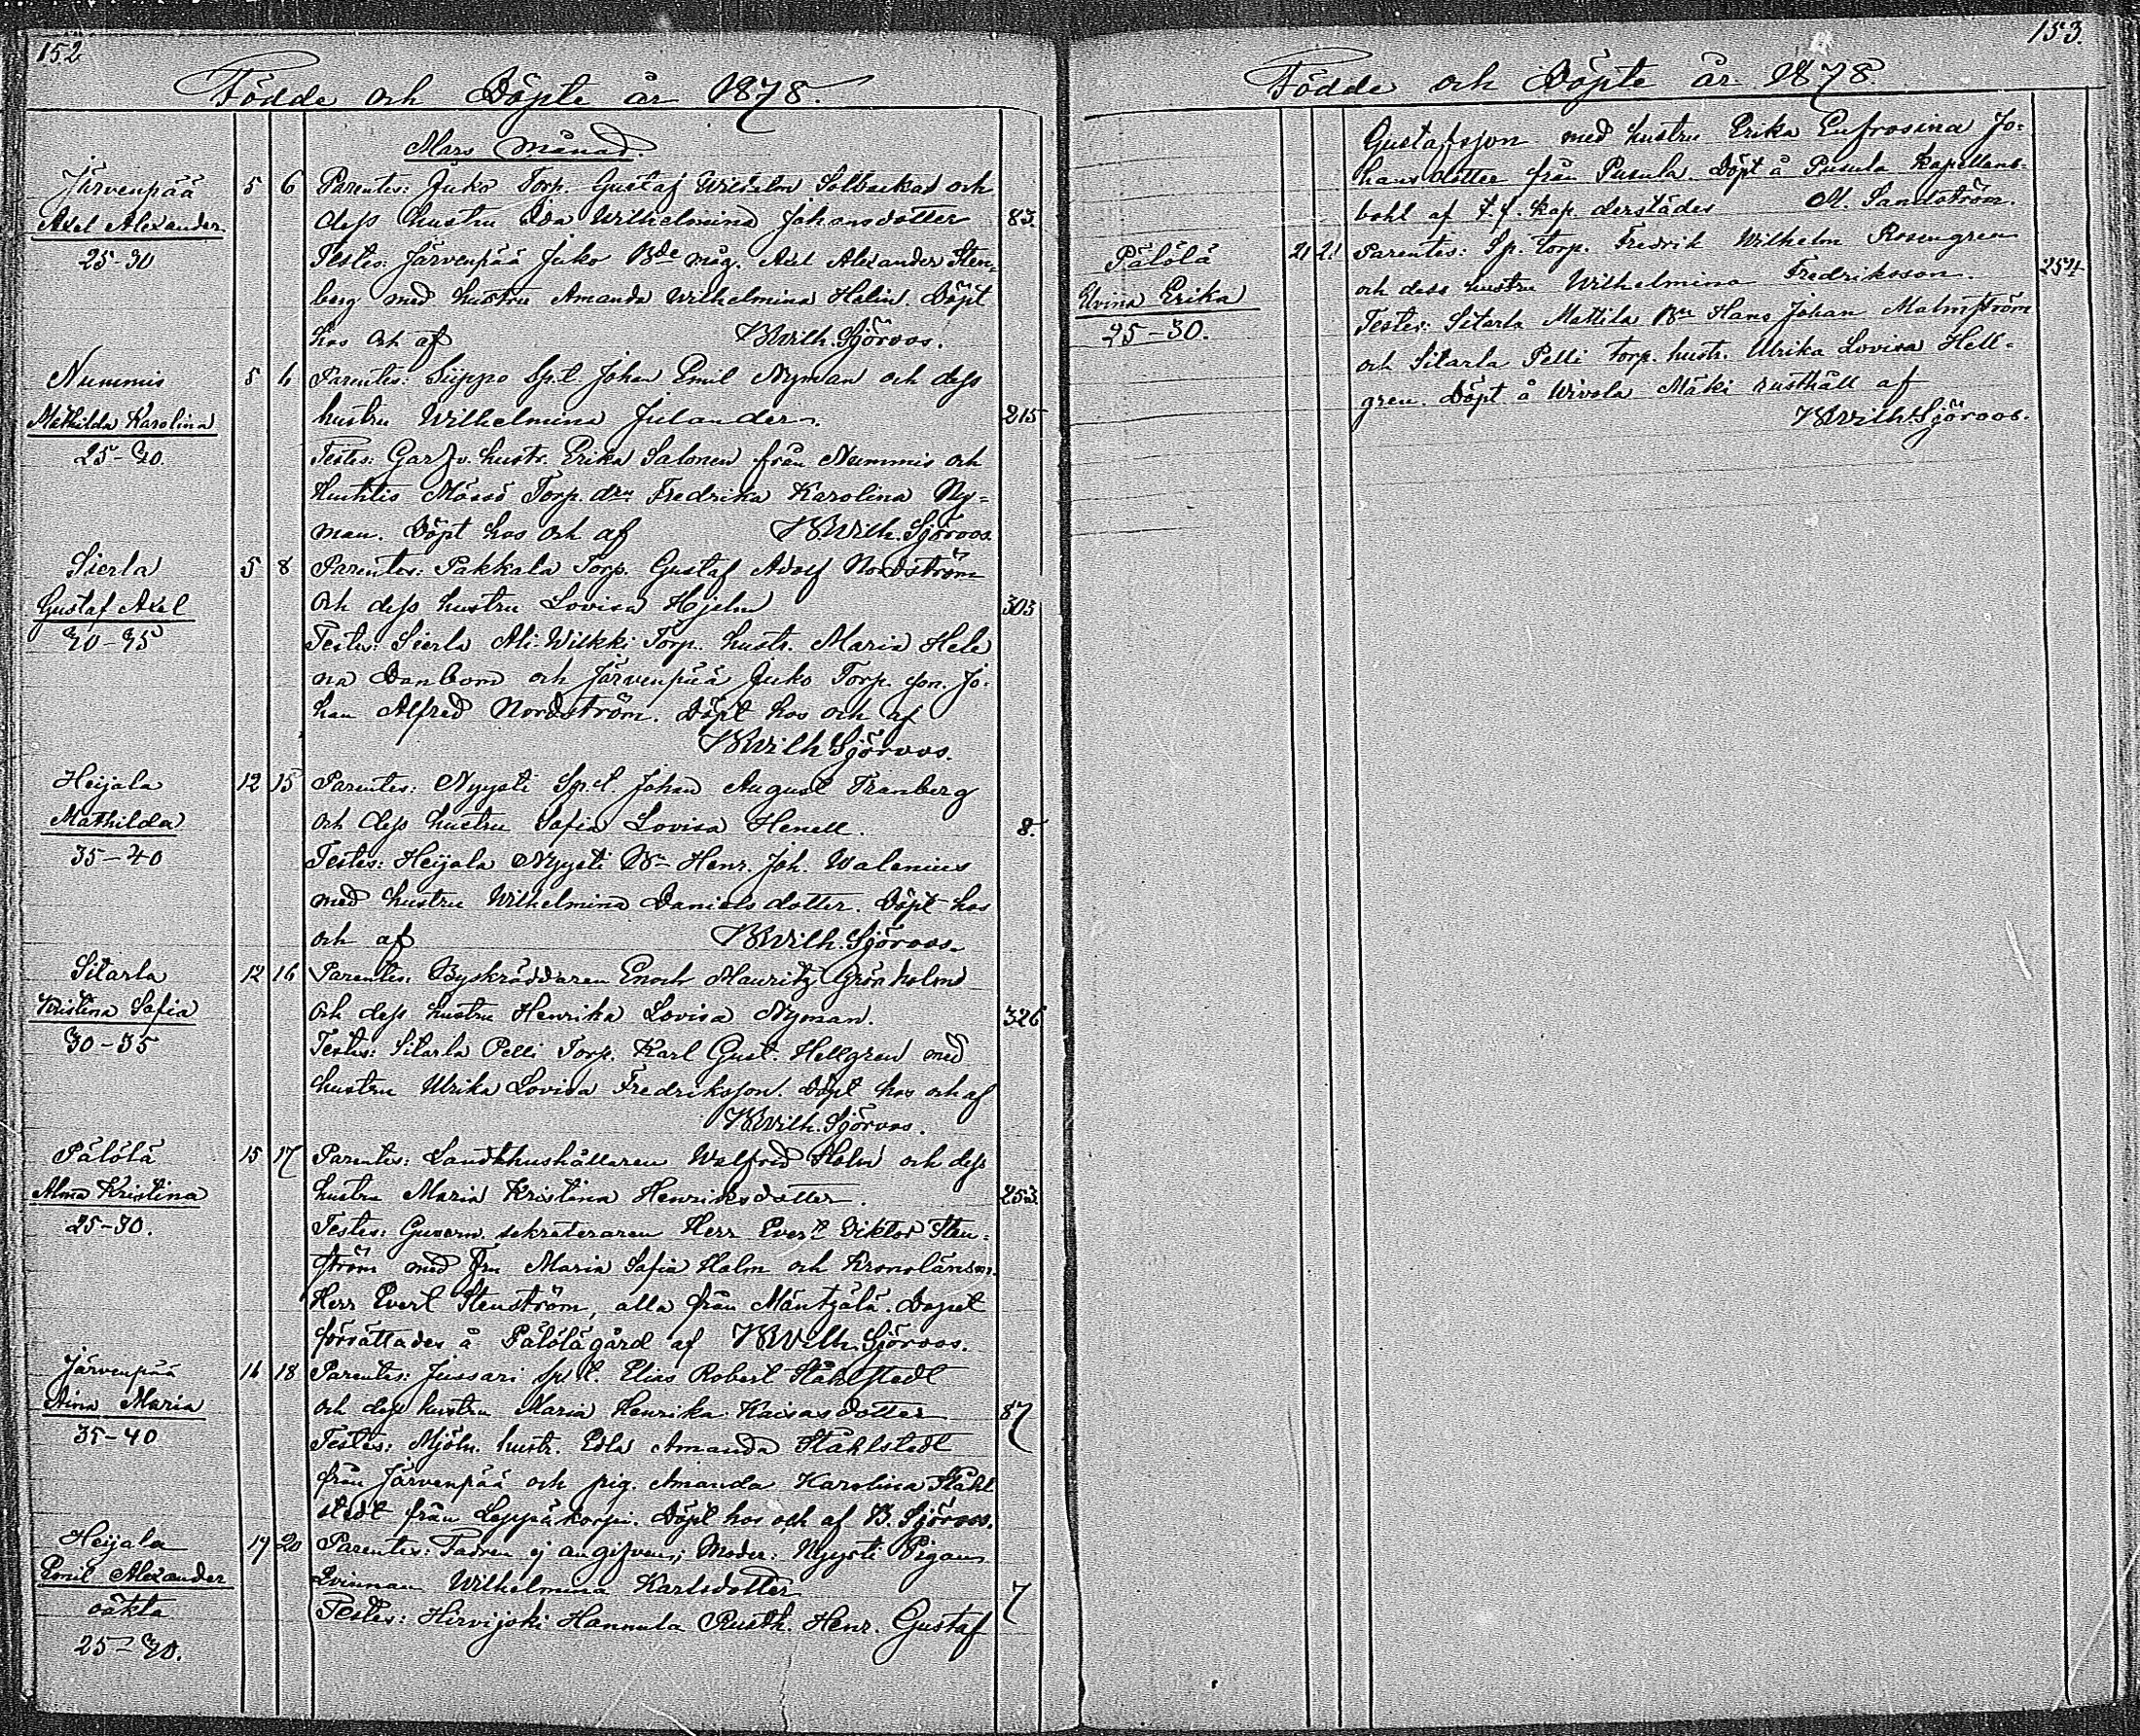 152
Födde och Döpte år 1878.
Mars Månad.
Järvenpää 5 6 Parentes: Juko Torp. Gustaf Wilhelm Solbackas och
Axel Alexander. dess hustru Ida Wilhelmina Johansdotter 83.
25-30 Testes: Järvenpää Juko Bde måg. Axel Alexander Sten-
berg med hustru Amanda Wilhelmina Holin. Döpt
hos och af BWilh. Sjöroos.
Nummis 5 6 Parentes: Siippo Sp.t. Johan Emil Nyman och dess
Mathilda Karolina hustru Wilhelmina Julander. 215
25-30. Testes: hustr. Erika Salonen från Nummis och
Huhtis Mössö Torp. drn Fredrika Karolina Ny=
man. Döpt hos och af BWilh. Sjöroos.
Sierla 5 8 Parentes: Pakkala Torp. Gustaf Adolf Nordström
Gustaf Axel och dess hustru Lovisa Hjelm 303
30-35 Testes: Sierla Ali-Wilkki Torp. hustr. Maria Hele
na Danbom och Järvenpää Juko Torp. son. Jo-
han Alfred Nordström. Döpt hos och af
BWilh Sjöroos.
Heijala 12 15 Parentes: Nyysti Sp.t. Johan August Tranberg
Mathilda och dess hustru Sofia Lovisa Henell. 8.
35-40 Testes: Heijala Nyysti Bn Henr. Joh. Walenius
med hustru Wilhelmina Danielsdotter. Döpt hos
och af BWilh. Sjöroos.
Sitarla 12 16 Parentes: Byskräddaren Enoch Mauritz Grönholm
Kristina Sofia och dess hustru Henrika Lovisa Nyman. 326
30-35 Testes: Sitarla Pelli Torp. Karl Gust. Hellgren med
hustru Ulrika Lovisa Fredriksson. Döpt hos och af
BWilh. Sjöroos.
Pälölä 15 17 Parentes: Landthushållaren Walfrid Holm och dess
Alma Kristina hustru Maria Kristina Henriksdotter. 253.
25-30. Testes: Guvern. sekreteraren Herr Evert Viktor Sten-
ström med Fru Maria Sofia Holm och Kronolänsm.
Herr Evert Stenström, alla från Mäntzälä. Dopet
försättades å Pälölä gård af BWilh. Sjöroos.
Järvenpää 16 18 Parentes: Jussari Sp.t. Elias Robert Ståhlstedt
Aina Maria och dess hustru Maria Henrika Kaisasdotter 87
35-40 Testes: Mjöln. hustr. Edla Amanda Ståhlstedt
från Järvenpää och pig. Amanda Karolina Ståhl
stedt från Leppäkorpi. Döpt hos och af B. Sjöroos.
Heijala 19 20 Parentes: Fadren ej angifven; Moder: Nyysti Pigan
Emil Alexander Qvinnan Wilhelmina Karlsdotter 7
oäkta Testes: Hirvijoki Hannula Rusth. Henr. Gustaf
25-30.
153.
Födde och Döpte år 1878.
Gustafsson med hustru Erika Eufrosina Jo-
hansdotter från Pusula. Döpt å Pusula Kapellans-
bohl af t.f. Kap. derstädes M. Sandström.
Pälölä 21 21 Parentes: Sp. torp. Fredrik Wilhelm Rosengren
Elvina Erika och dess hustru Wilhelmina Fredriksson. 254
25-30. Testes: Sitarla Mattila Bn Hans Johan Malmström
och Sitarla Pelli torp. hustr. Ulrika Lovisa Hell-
gren. Döpt å Wivola Mäki rusthåll af
BWilh. Sjöroos.